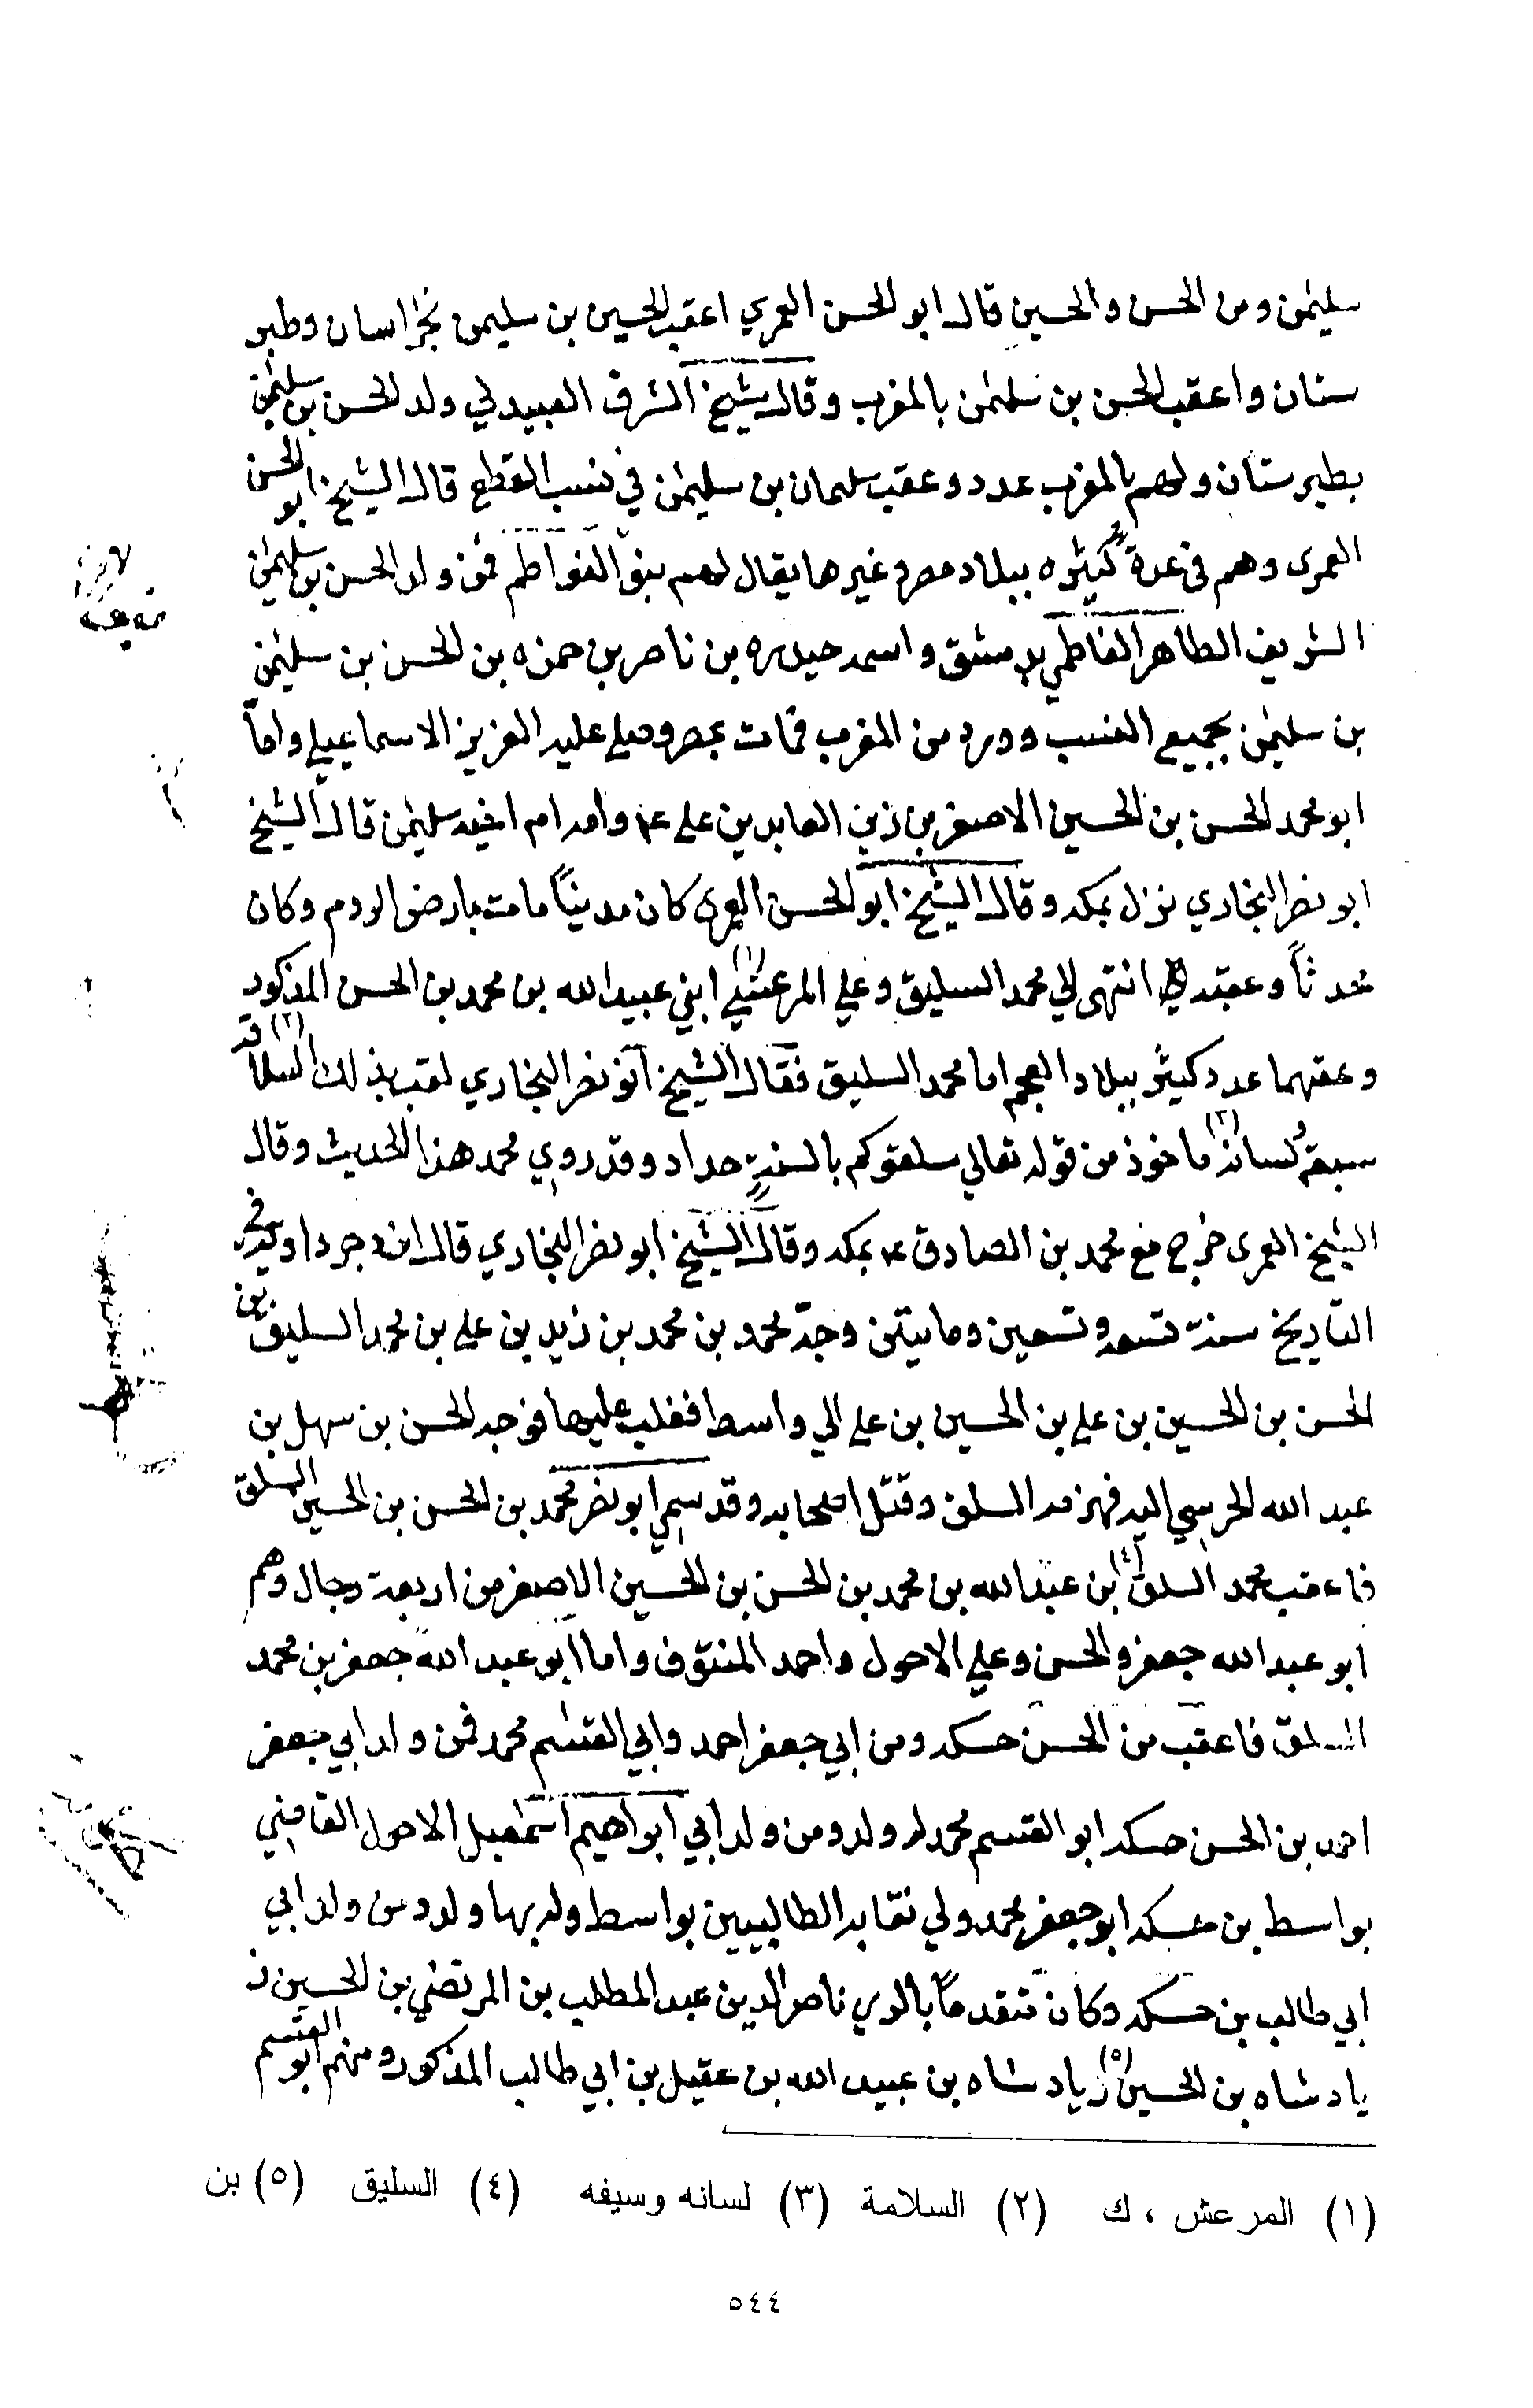 سليمٰن ومن الحسن والحسين قال ابو الحسن العمري اعقب الحسين بن سليمن بخراسان وطبر
ستان واعقب الحسن بن سليمٰن بالمغرب وقال شيخ الشرف العبيدلي ولد الحسن بن سليمٰن
بطبرستان ولهم بالمغرب عدد وعقب سليمان بن سليمٰن في نسب القطع قال الشيخ ابو الحسن
العمرى وهم فى عدة كثيره ببلاد مصر وغيرها يقال لهم بنو الفواطم فمن ولد الحسن بن سليمٰن
الشريف الطاهر الفاطمي بدمشق واسمه حيدره بن ناصر بن حمزه بن الحسن بن سليمٰن
بن سليمٰن بجميع النسب وورد من المغرب فمات بمصر وصلى عليه العزيز الاسماعيلي واما
ابو محمد الحسن بن الحسين الاصغر بن زين العابدين على عم وامه ام اخيه سليمٰن قال الشيخ
ابو نصر البخاري نزل بمكه وقال الشيخ ابو الحسن العمرى كان مدنيًا مات بارض الروم وكان
محدثًا وعقبه انتهى الي محمد السليق وعلي المرعشي(١) ابني عبيد الله بن محمد بن الحسن المذكور
وعقبهما عدد كثير ببلاد العجم اما محمد السليق فقال الشيخ ابو نصر البخاري لقب بذلك السلاقه(٢)
سيفه لسانه(٣) ماخوذ من قوله تعالي سلقوكم بالسنةٍ حداد وقد روي محمد هذا الحديث وقال
الشيخ العمرى خرج مع محمد بن الصادق عم بمكه وقال الشيخ ابو نصر البخاري قال ابن وجرداويه في
التاريخ سنة تسعه وتسعين ومايتين وجّه محمد بن محمد بن زيد بن علي بن محمد السليق بن
الحسن بن الحسين بن علي بن الحسين بن علي الي واسط فغلب عليها فوجه الحسن بن سهل بن
عبد الله الحرسي اليه فهزمه السلق وقتل اصحابه وقد سمي ابو نصر محمد بن الحسن بن الحسين السلق
فاعقب محمد السلق(٤) بن عبد الله بن محمد بن الحسن بن الحسين الاصغر من اربعة رجال وهم
ابو عبد الله جعفر والحسن وعلي الاحول واحمد المنتوف واما ابو عبد الله جعفر بن محمد
السلق فاعقب من الحسن حسكه ومن ابي جعفر احمد وابي القسٰم محمد فمن ولد ابي جعفر
احمد بن الحسن حسكه ابو القسم محمد له ولد ومن ولد ابي ابراهيم اسمٰعيل الاحول القاضي
بواسط بن حسكه ابو جعفر محمد ولي نقابه الطالبيين بواسط وله بها ولد ومن ولد ابي
ابي طالب بن حسكه وكان متقدمًا بالري ناصر الدين عبد المطلب بن المرتضي بن الحسين ز
يادشاه بن الحسين(٥) زيادشاه بن عبيد الله بن عقيل بن ابي طالب المذكور ومنهم ابو القسم
(١) المرعش ، ك (٢) السلامة (٣) لسانه وسيفه (٤) السليق (٥) بن
٥٤٤